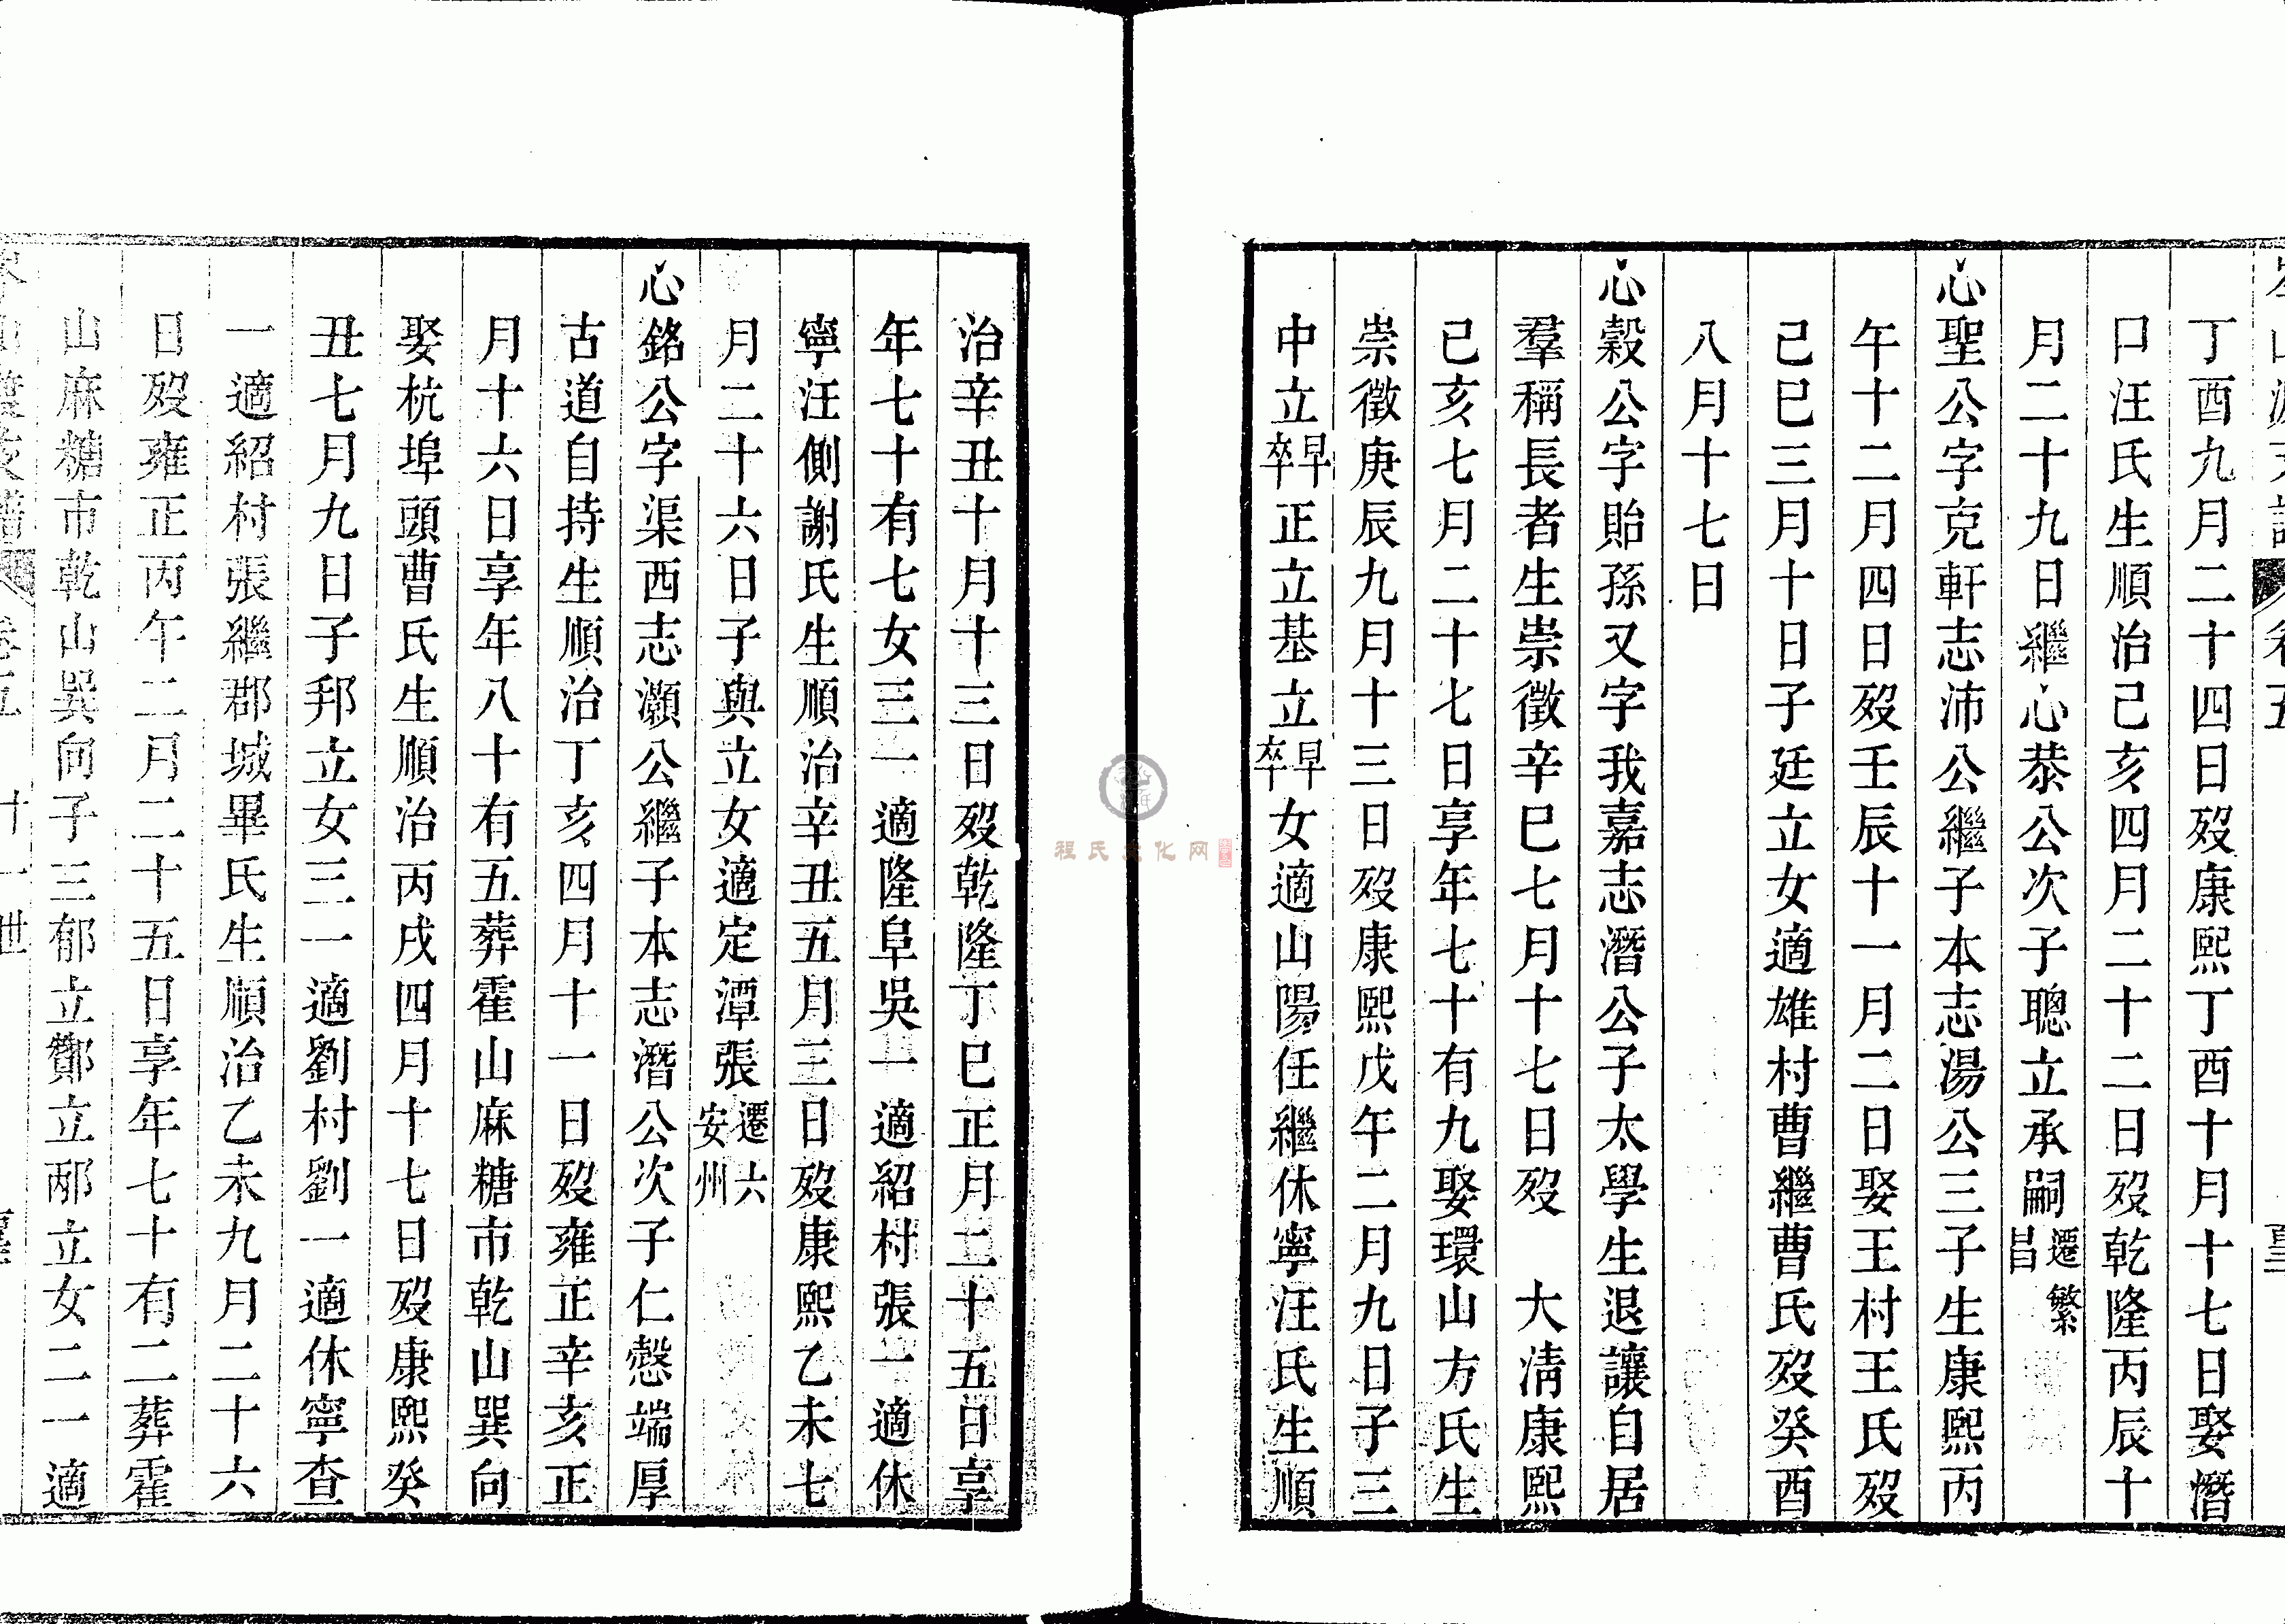 丁酉九月二十四日歿康熙丁酉十月十七日娶潛
口汪氏生順治己亥四月二十二日歿乾隆丙辰十
月二十九日繼心恭公次子聰立承嗣遷繁昌
心聖公字克軒志沛公繼子本志湯公三子生康熙丙
午十二月四日歿壬辰十一月二日娶王村王氏歿
己巳三月十日子廷立女適雄村曹繼曹氏歿癸酉
八月十七日
心穀公字貽孫又字我嘉志潛公子太學生退讓自居
羣稱長者生崇徵辛巳七月十七日歿 大清康熙
己亥七月二十七日享年七十有九娶環山方氏生
崇徵庚辰九月十三日歿康熙戊午二月九日子三
中立早卒正立基立早卒女適山陽任繼休寧汪氏生順
治辛丑十月十三日歿乾隆丁巳正月二十五日享
年七十有七女三一適隆阜吳一適紹村張一適休
寧汪側謝氏生順治辛丑五月三日歿康熙乙未七
月二十六日子與立女適定潭張遷六安州
心銘公字渠西志灝公繼子本志潛公次子仁慤端厚
古道自持生順治丁亥四月十一日歿雍正辛亥正
月十六日享年八十有五葬霍山麻糖市乾山巽向
娶杭埠頭曹氏生順治丙戌四月十七日歿康熙癸
丑七月九日子邦立女三一適劉村劉一適休寧查
一適紹村張繼郡城畢氏生順治乙未九月二十六
日歿雍正丙午二月二十五日享年七十有二葬霍
山麻糖市乾山巽向子三郁立酇立邴立女二一適
卷五 十一世
程氏文化网